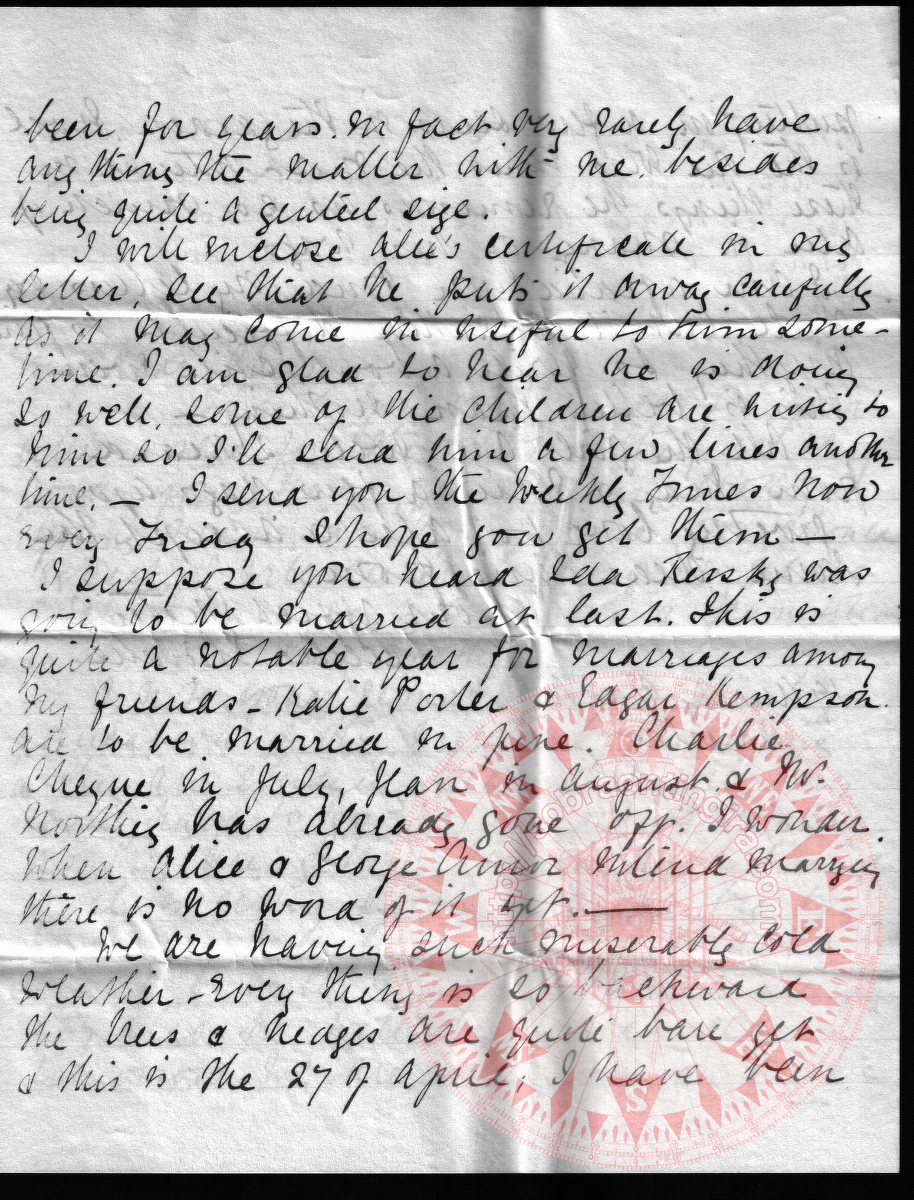 been for years. In fact very rarely have
any thing the matter with me, besides
being quite a genteel size.
I will inclose Alec's certificate in my
letter, see that he puts it away carefully
as it may come in useful to him some-
time. I am glad to hear he is doing
so well, some of the children are writing to
him so I'll send him a few lines another
time. — I send you the Weekly Times now
every Friday I hope you get them —
I suppose you heard Ida was
going to be married at last. This is
quite a notable year for marriages among
my friends - Katie Porter & Edgar Kempson
are to be married in June. Charlie
Cheyne in July, Jean in August & W.
has already gone off. I wonder
when Alice & George intend marrying
there is no word of it yet. —
We are having such miserably cold
weather - every thing is so backward
the trees & hedges are quite bare yet
& this is the 27 of April. I have been